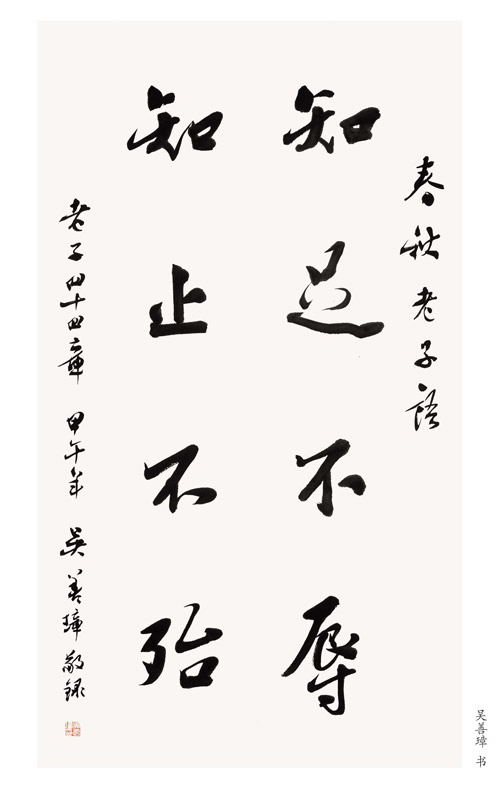 春秋老子语
知足不辱
知止不殆
老子四十四章 甲午年 吴善璋敬录
吴善璋 书